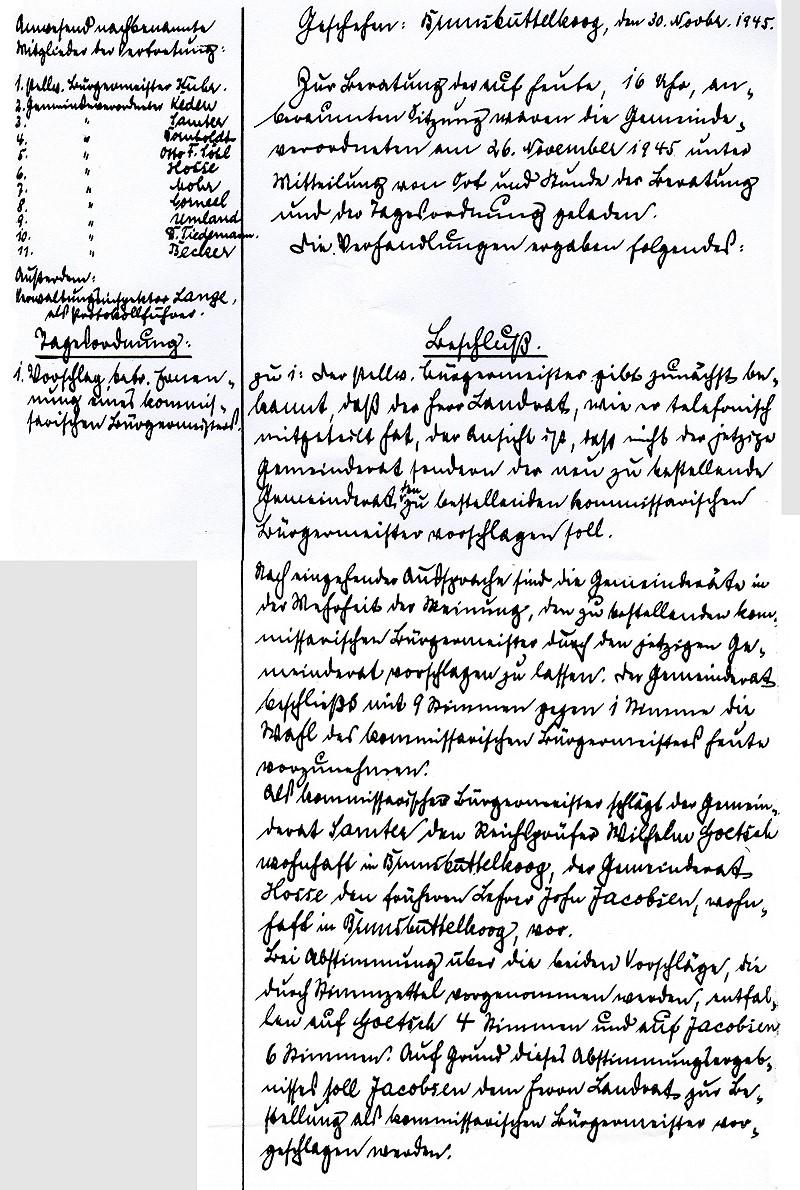 Anwesend nachbenannte
Mitglieder der Vertretung:
1. stellv. Bürgermeister Kuhr.
2. Gemeindeverordneter Keden
3. " Samtler
4. " Bornholdt
5. " Otto F. Sohl
6. " Hosse
7. " Mohr
8. " Gorneel
9. " Umland
10. " W. Tiedemann.
11. " Becker
Außerdem:
Verwaltungsinspektor Lange,
als Protokollführer.
Tagesordnung:
1. Vorschlag betr. Ernen-
nung eines kommis-
sarischen Bürgermeisters.
Geschehen: Brunsbüttelkoog, den 30. Novbr. 1945.
Zur Beratung der auf heute, 16 Uhr, an-
beraumten Sitzung waren die Gemeinde-
verordneten am 26. November 1945 unter
Mitteilung von Ort und Stunde der Beratung
und der Tagesordnung geladen.
Die Verhandlungen ergaben folgendes:
Beschluß.
zu 1: Der stellv. Bürgermeister gibt zunächst be-
kannt, daß der Herr Landrat, wie er telefonisch
mitgeteilt hat, der Ansicht ist, daß nicht der jetzige
Gemeinderat sondern der neu zu bestellende
Gemeinderat den zu bestellenden kommissarischen
Bürgermeister vorschlagen soll.
Nach eingehender Aussprache sind die Gemeinderäte in
der Mehrheit der Meinung, den zu bestellenden kom-
missarischen Bürgermeister durch den jetzigen Ge-
meinderat vorschlagen zu lassen. Der Gemeinderat
beschließt mit 9 Stimmen gegen 1 Stimme die
Wahl des kommissarischen Bürgermeisters heute
vorzunehmen.
Als kommissarischer Bürgermeister schlägt der Gemein-
derat Samtler den Reichsprüfer Wilhelm Goetsch
wohnhaft in Brunsbüttelkoog, der Gemeinderat
Hosse den früheren Lehrer John Jacobsen, wohn-
haft in Brunsbüttelkoog, vor.
Bei Abstimmung über die beiden Vorschläge, die
durch Stimmzettel vorgenommen werden, entfal-
len auf Goetsch 4 Stimmen und auf Jacobsen
6 Stimmen. Auf Grund dieses Abstimmungsergeb-
nisses soll Jacobsen dem Herrn Landrat zur Be-
stellung als kommissarischen Bürgermeister vor-
geschlagen werden.